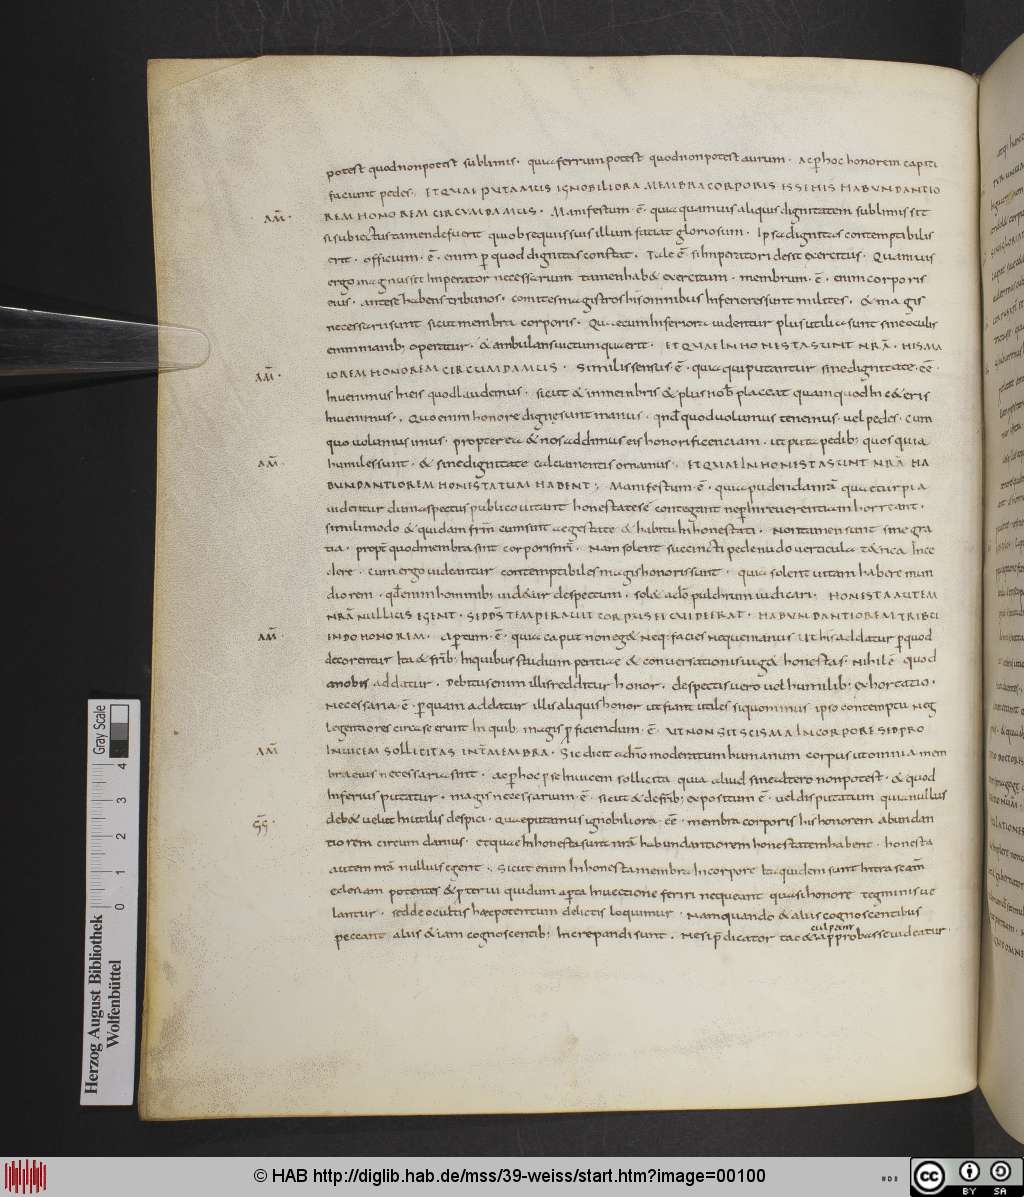 potest quod non potest sublimis · quia ferrum potest quod non potest aurum · ac phoc honorem capiti
faciunt pedes · ET QUAE PUTAMUS IGNOBILIORA MEMBRA CORPORIS ESSE HIS HABUNDANTIO
AM̄ · REM HONOREM CIRCUMDAMUS · Manifestum · ē · quia quamuis aliquis dignitatem sublimis sit
si subiectus tamen defuerit qui obsequiis suis illum faciat gloriosum · Ipsa dignitas contemptibilis
erit · officium · ē · enim p quod dignitas constat · Tale ē si Imperatori desit exercitus · Quamuis
ergo magnus sit Imperator necessarium tamen hab& exercitum · membrum · ē · enim corporis
eius · ante se habens tribunos · comites magistros his omnibus Inferiores sunt milites · & magis
necessarii sunt sicut membra corporis · Quaecum Inferiora uidentur plus utilia sunt sine oculis
enim manib; operatur · & ambulans uictum quaerit · ET QUAE INHONESTA SUNT NRĀ · HIS MA
AM̄ · IOREM HONOREM CIRCUMDAMUS · Similis sensus ē · quia qui putantur sine dignitate · ēē ·
Inuenimus In eis quod laudemus · sicut & In membris & plus nob̄ placeat quam quod In c&eris
Inuenimus · Quo enim honore dignae sunt manus · qm̄d quod uolumus tenemus · uel pedes · cum
quo uolumus imus · propterea & nos addimus eis honorificenciam · ut puta pedib; quos quia
AM̄ · humiles sunt · & sine dignitate calciamentis ornamus · ET QUAE INHONESTA SUNT NRĀ HA
BUNDANTIOREM HONESTATEM HABENT · Manifestum · ē · quia pudenda nrā quae turpia
uidentur dum aspectus publico uitant honestate se contegant ne p Inreuerentiam horreant ·
simili modo & quidam frm̄ cum sint aegestate & habitu Inhonestati · Non tamen sunt sine gra
tia · propt̄ quod membra sint corporis nr̄i · Nam solent succincti pede nudo uerticula t&rica Ince
dere · cum ergo uideantur contemptibiles magis honoris sunt · quia solent uitam habere mun
diorem · qd̄ enim hominib; uid&ur despectum · sol& adm̄ pulchrum iudicari · HONESTA AUTEM
NRĀ NULLIUS EGENT · SED DS̄ TEMPERAUIT CORPUS EI CUI DEERAT · HABUNDANTIOREM TRIBU
AM̄ · ENDO HONOREM · Aptum · ē · quia caput non eg& neq; facies neque manus Ut his addatur p quod
decorentur Ita & frīb; In quibus studium peritiae & conuersationis uig& honestas · Nihil ē quod
a nobis addatur · Debitus enim illis redditur honor · despectis uero uel humilib; exhortatio ·
Necessaria · ē · p quam addatur illis aliquis honor ut fiant utiles si quominus · ipso contemptu neg
legentiores circa se erunt In quib; magis p̄ficiendum · ē · UT NON SIT SCISMA IN CORPORE SED PRO
AM̄ INUICEM SOLLICITAS INT̄ MEMBRA · Sic dicit a dn̄o moderatum humanum corpus ut omnia mem
bra eius necessaria sint · ac phoc p se Inuicem sollicita quia aliud sine altero non potest · & quod
Inferius putatur · magis necessarium · ē · sicut & de frīb; expositum ē · uel disputatum quia nullus
GḠ · deb& uelut Inutilis despici · Quae putamus ignobiliora · ēē · membra corporis his honorem abundan
tiorem circum damus · et quae Inhonesta sunt nrā habundantiorem honestatem habent · honesta
autem nrā nullius egent · Sicut enim Inhonesta membra In corpore Ita quidem sunt Intra scām̄
eclesiam potentes & pterui qui dum apta Inuectione feriri nequeant quasi honore tegminis ue
lantur · sed de occultis haec potentum delictis loquimur · Nam quando & aliis cognoscentibus
culpam
peccant aliis & iam cognoscentib; Increpandi sunt · ne si p̄dicator tac& approbasse uideatur ·
Gray Scale
0 1 2 3 4
Herzog August Bibliothek
Wolfenbüttel
© HAB http://diglib.hab.de/mss/39-weiss/start.htm?image=00100
cc BY SA